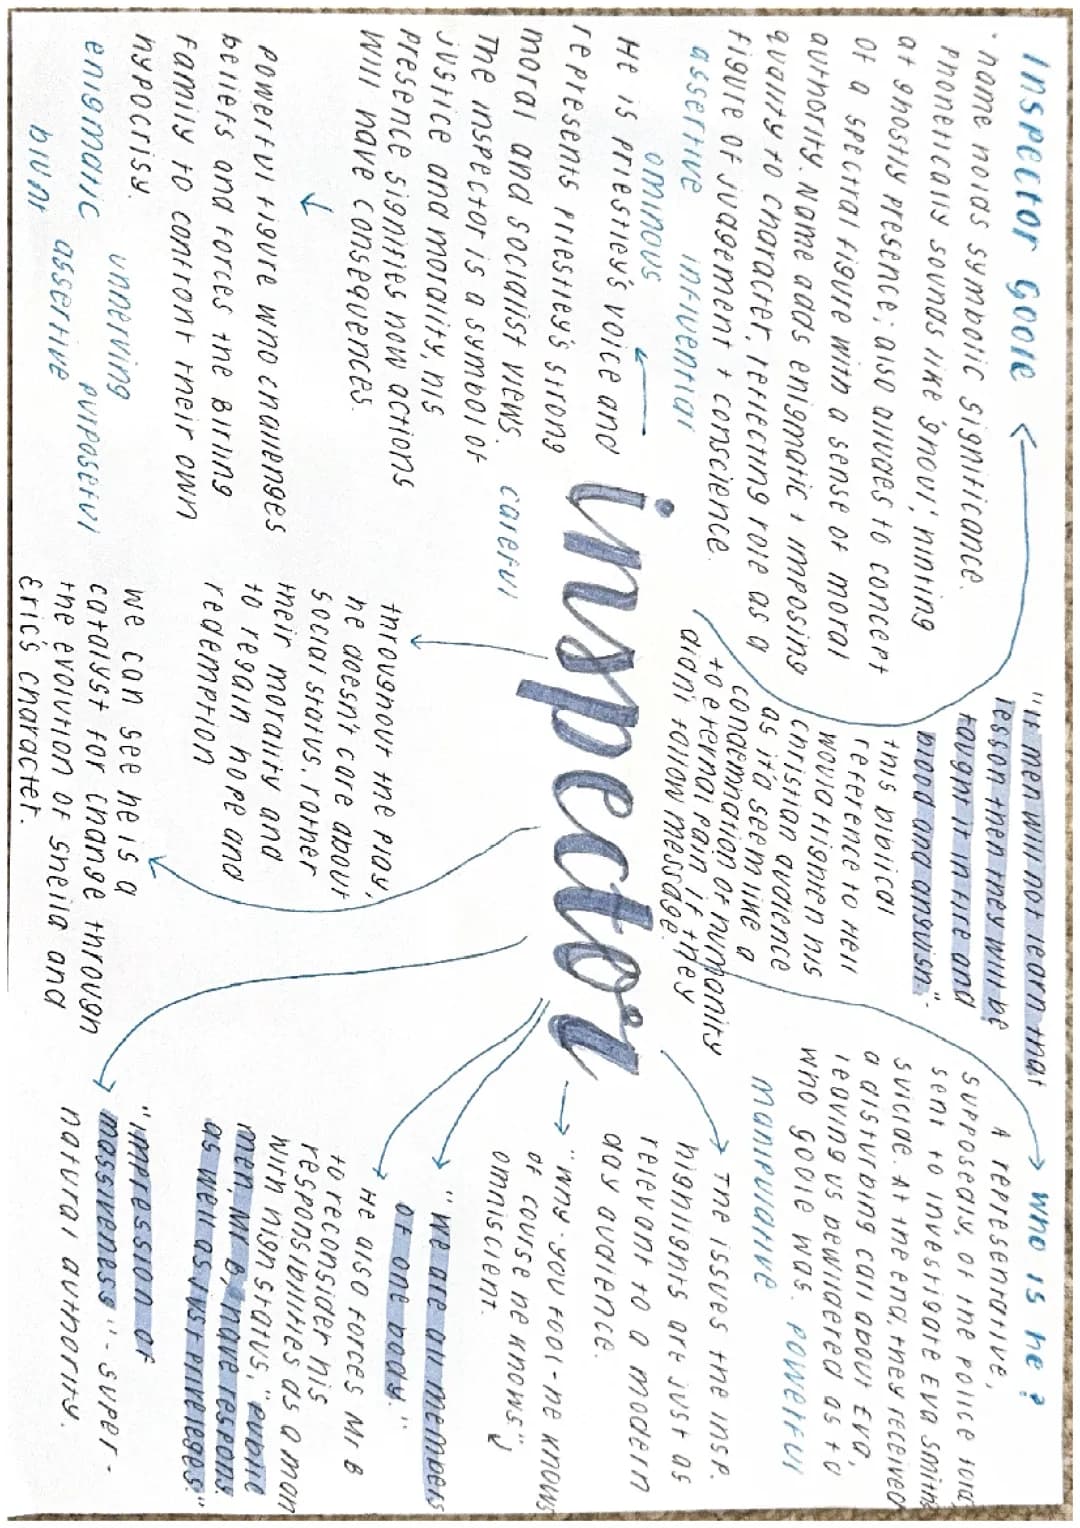 Inspector Goole
· name holds symbolic significance.
phonetically sounds like 'ghoul', hinting
at ghostly presence; also alludes to concept
of a spectral figure with a sense of moral
authority. Name adds enigmatic + imposing
quality to character, reflecting role as a
figure of judgement + conscience.
assertive influential
ominous
He is priestley's voice and
represents priestley's strong
moral and socialist views.
The inspector is a symbol of
justice and morality, his
presence signifies how actions
will have consequences.
careful
powerful figure who challenges
beliefs and forces the Birling
family to confront their own
hypocrisy.
unnerving
enigmatic purposeful
assertive
blunt
inspector
"If men will not learn that
lesson then they will be
taught it in fire and
blood and anguish".
this biblical
reference to Hell
would frighten his
christian audience
as it'd seem like a
condemnation of humanity
to eternal pain if they
didn't follow message.
throughout the play,
he doesn't care about
social status, rather
their morality and
to regain hope and
redemption
we can see he is a
catalyst for change through
the evolution of sheila and
Eric's character.
who is he?
A representative,
supposedly, of the police told/
sent to investigate Eva Smith's
suicide. At the end, they received
a disturbing call about Eva,
leaving us bewildered as to
who goole was. powerful
manipulative
The issues the insp.
highlights are just as
relevant to a modern
day audience.
"why-you fool-he knows
of course he knows"
omniscient.
"We are all members
of one body."
He also forces Mr B
to reconsider his
responsibilities as a man
with high status, "public
men Mr B, have respons.
as well as just privileges."
"impression of
massiveness" - super-
natural authority.